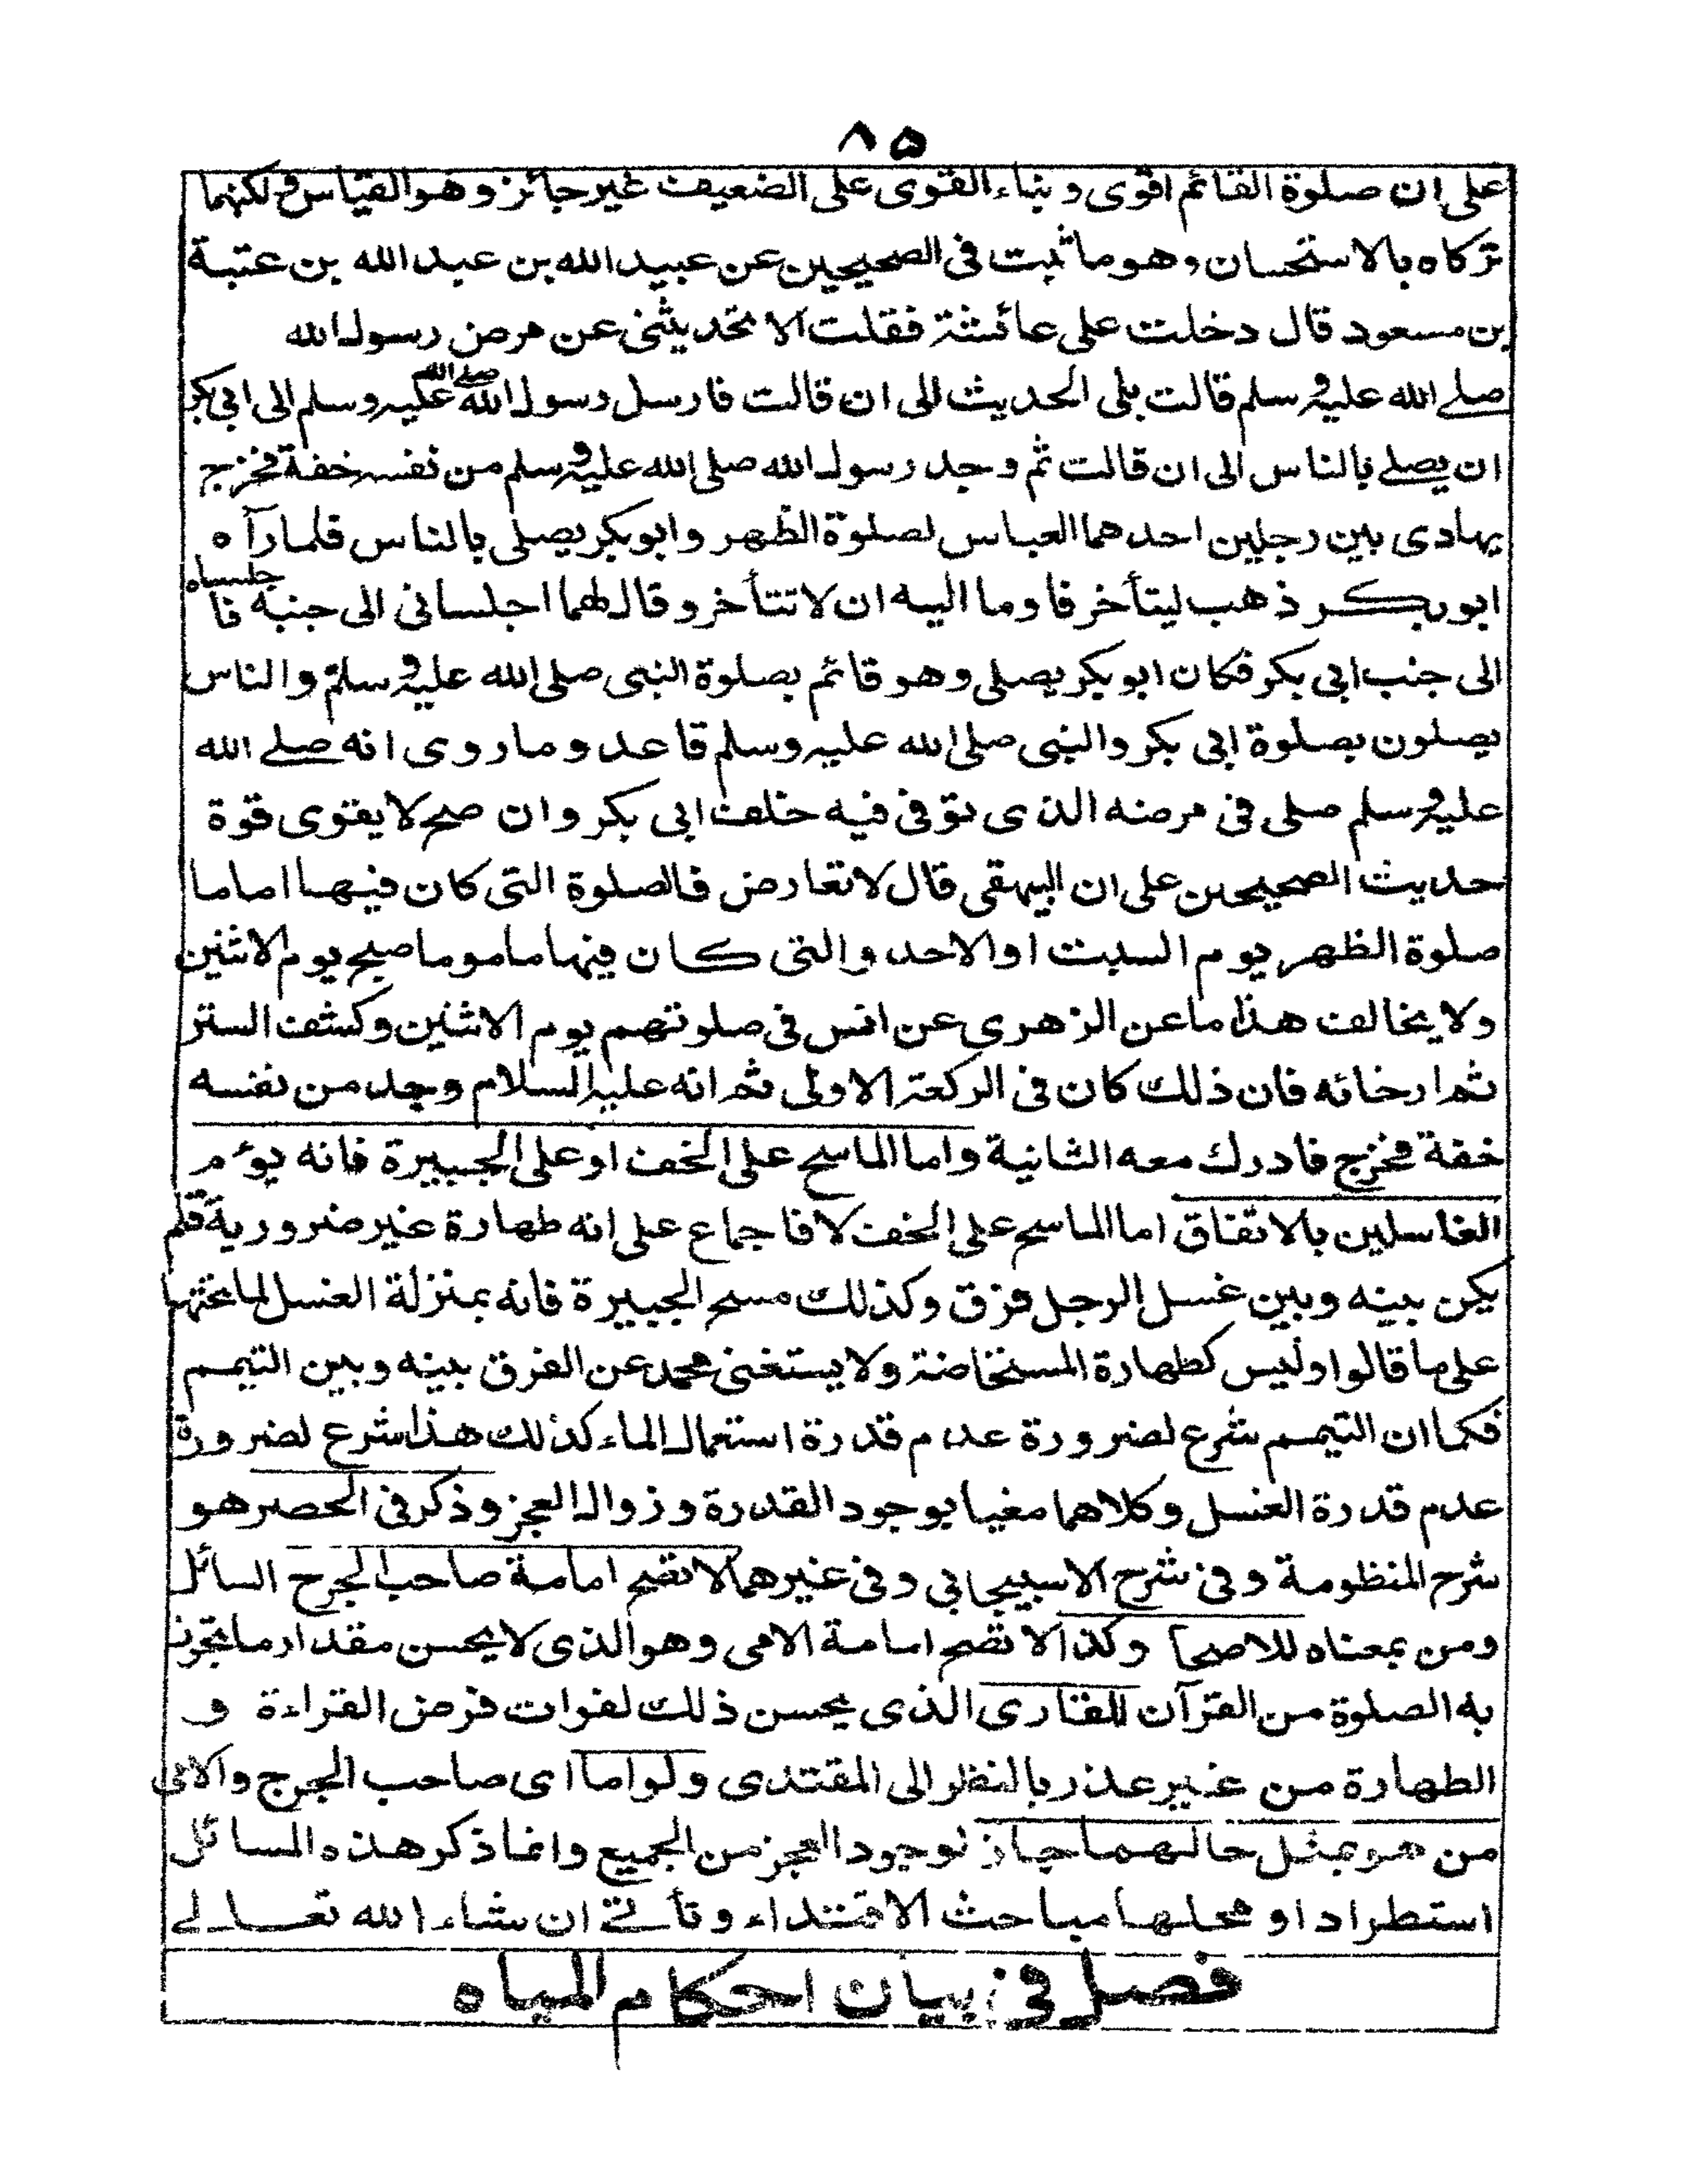 ٨٥
على ان صلوة القائم اقوى و بناء القوى على الضعيف غير جائز و هو القياس و لكنهما
تركاه بالاستحسان و هو ما ثبت فى الصحيحين عن عبيد الله بن عبد الله بن عتبة
بن مسعود قال دخلت على عائشة فقلت الا تحدثينى عن مرض رسول الله
صلے الله عليه و سلم قالت بلى الحديث الى ان قالت فارسل رسول الله صلے الله عليه وسلم الى ابى بكر
ان يصلے بالناس الى ان قالت ثم وجد رسول الله صلى الله عليه و سلم من نفسه خفة فخرج
يهادى بين رجلين احدهما العباس لصلوة الظهر و ابو بكر يصلى بالناس فلما رآه
ابو بكر ذهب ليتأخر فاوما اليه ان لا تتأخر و قال لهما اجلسانى الى جنبه فاجلساه
الى جنب ابى بكر فكان ابو بكر يصلى و هو قائم بصلوة النبى صلى الله عليه و سلم والناس
يصلون بصلوة ابى بكر والنبى صلى الله عليه وسلم قاعد و ما روى انه صلے الله
عليه و سلم صلى فى مرضه الذى توفى فيه خلف ابى بكر و ان صح لا يقوى قوة
حديث الصحيحين على ان البيهقى قال لا تعارض فالصلوة التى كان فيها اماما
صلوة الظهر يوم السبت او الاحد و التى كان فيها ماموما صبح يوم الاثنين
ولا يخالف هذا ما عن الزهرى عن انس فى صلوتهم يوم الاثنين وكشف الستر
ثم ارخائه فان ذلك كان فى الركعة الاولى ثم انه عليه السلام وجد من نفسه
خفة فخرج فادرك معه الثانية و اما الماسح على الخف او على الجبيرة فانه يؤم
الغاسلين بالاتفاق اما الماسح على الخف لا فاجماع على انه طهارة غير ضرورية فلم
يكن بينه و بين غسل الرجل فرق وكذلك مسح الجبيرة فانه بمنزلة الغسل لما تحتها
على ما قالوا و ليس كطهارة المستحاضة ولا يستغنى محمد عن الفرق بينه و بين التيمم
فكما ان التيمم شرع لضرورة عدم قدرة استعمال الماء كذلك هذا شرع لضرورة
عدم قدرة الغسل و كلاهما مغيا بوجود القدرة و زوال العجز و ذكر فى الحصر هو
شرح المنظومة و فى شرح الاسبيجابي و فى غيرهما لا تصح امامة صاحب الجرح السائل
ومن بمعناه للاصحا و كذا لا تصح امامة الامى و هو الذى لا يحسن مقدار ما تجوز
به الصلوة من القرآن للقارى الذى يحسن ذلك لفوات فرض القراءة و
الطهارة من غير عذر بالنظر الى المقتدى و لو اما اى صاحب الجرح و الامى
من هو بمثل حالهما جاز لوجود العجز من الجميع و انما ذكر هذه المسائل
استطرادا و محلها مباحث الاقتداء و تأتے ان شاء الله تعالے
فصل فى بيان احكام المياه